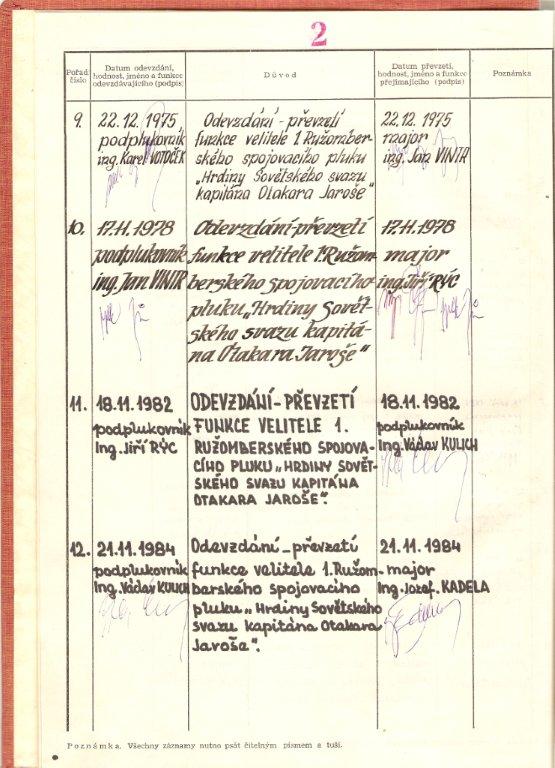 2
Pořad.
číslo
Datum odevzdání,
hodnost, jméno a funkce
odevzdávajícího (podpis)
Důvod
Datum převzetí,
hodnost, jméno a funkce
přejímajícího (podpis)
Poznámka
9.
22.12.1975
podplukovník
ing. Karel VOTOČEK
Odevzdání-převzetí
funkce velitele 1. Ružomber-
ského spojovacího pluku
„Hrdiny Sovětského svazu
kapitána Otakara Jaroše"
22.12.1975
major
ing. Jan VINTR
10.
17.11.1978
podplukovník
ing. Jan VINTR
Odevzdání-převzetí
funkce velitele 1. Ružom-
berského spojovacího
pluku „Hrdiny Sovět-
ského svazu kapitá-
na Otakara Jaroše"
17.11.1978
major
ing. Jiří RÝC
11.
18.11.1982
podplukovník
Ing. Jiří RÝC
ODEVZDÁNÍ-PŘEVZETÍ
FUNKCE VELITELE 1.
RUŽOMBERSKÉHO SPOJOVA-
CÍHO PLUKU „HRDINY SOVĚT-
SKÉHO SVAZU KAPITÁNA
OTAKARA JAROŠE".
18.11.1982
podplukovník
Ing. Václav KULICH
12.
21.11.1984
podplukovník
Ing. Václav KULICH
Odevzdání-převzetí
funkce velitele 1. Ružom-
berského spojovacího
pluku „Hrdiny Sovětského
svazu kapitána Otakara
Jaroše".
21.11.1984
major
Ing. Jozef KADELA
Poznámka. Všechny záznamy nutno psát čitelným písmem a tuší.